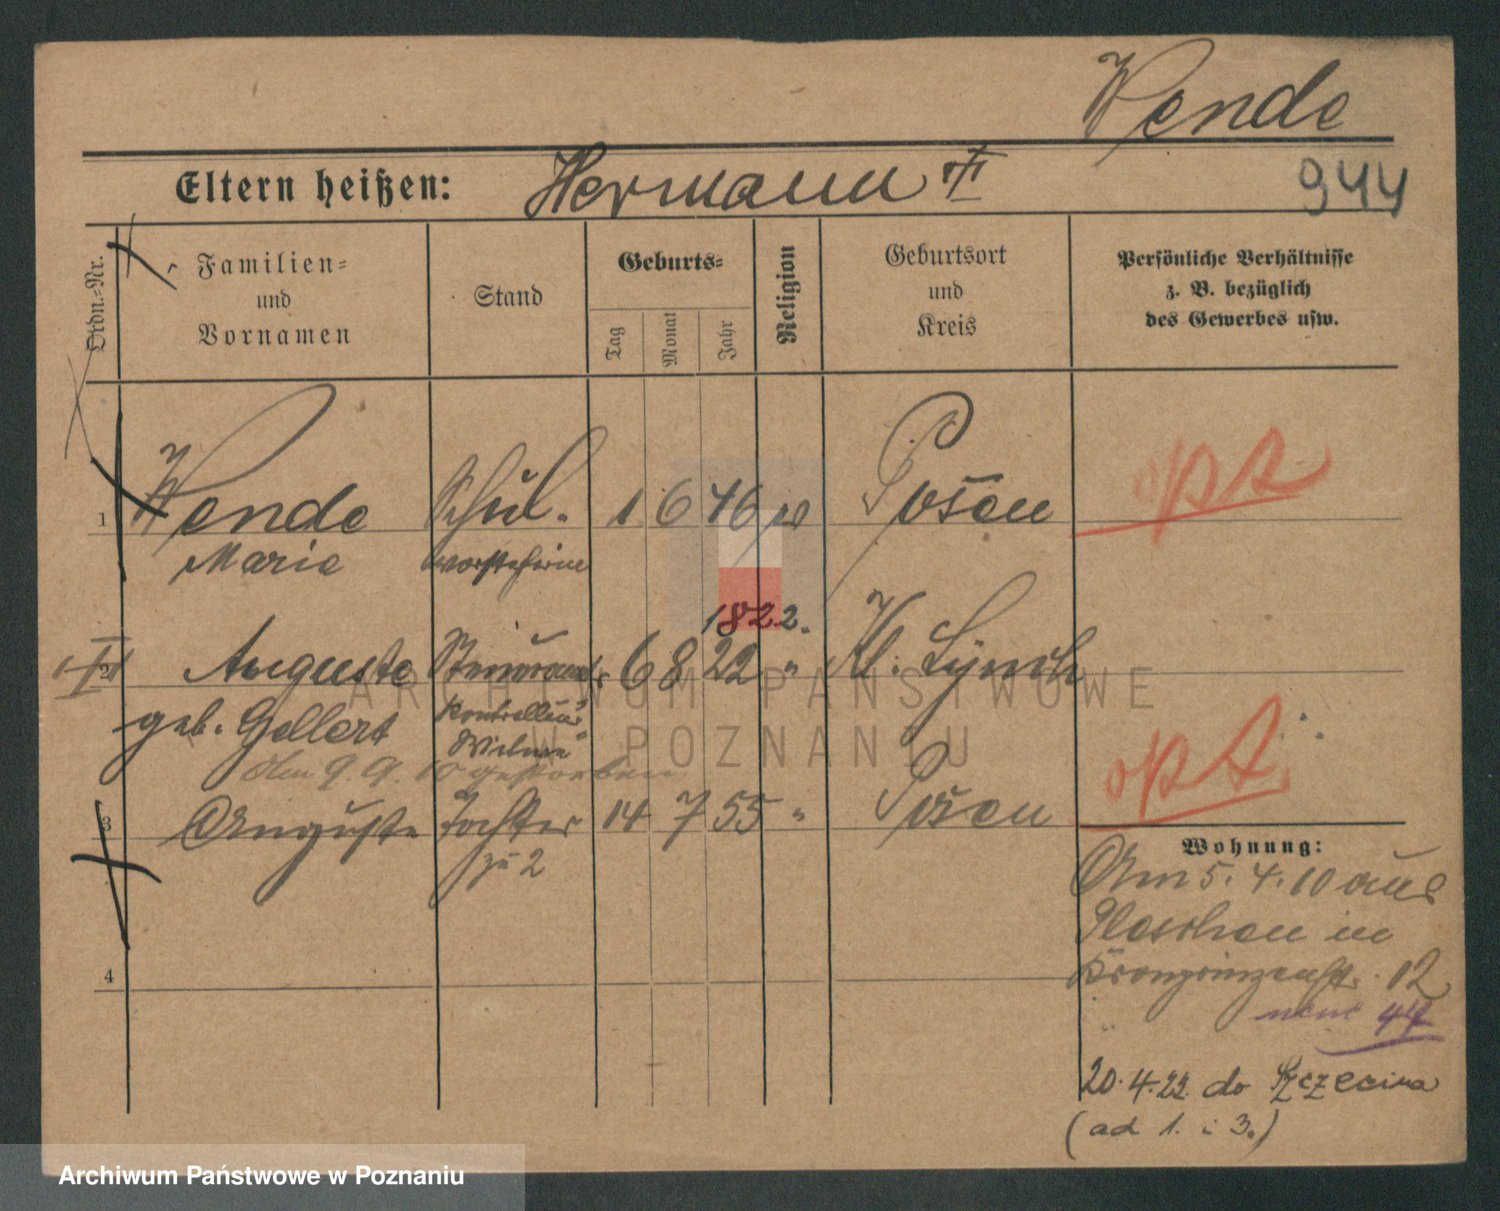 Wende
Eltern heißen: Hermann
944
Ordn.-Nr.
Familien-
und
Vornamen
Stand
Geburts-
Tag
Monat
Jahr
Religion
Geburtsort
und
Kreis
Persönliche Verhältnisse
z. B. bezüglich
des Gewerbes usw.
1
Wende Schul. 1 6 46 Posen opt
Marie vorsteherin
1822.
2
Auguste 6 8 22 " Kl.
geb. Gellert
Witwe
Am 9. 9. 10 gestorben
opt
3
Auguste Tochter 14 7 55 " Posen
zu 2
4
Wohnung:
Am 5. 4. 10 aus
Pleschen in
Kronprinzenstr. 12
neue 44
20.4.22. do Szczecina
(ad 1. i 3.)
ARCHIWUM PAŃSTWOWE
W POZNANIU
Archiwum Państwowe w Poznaniu